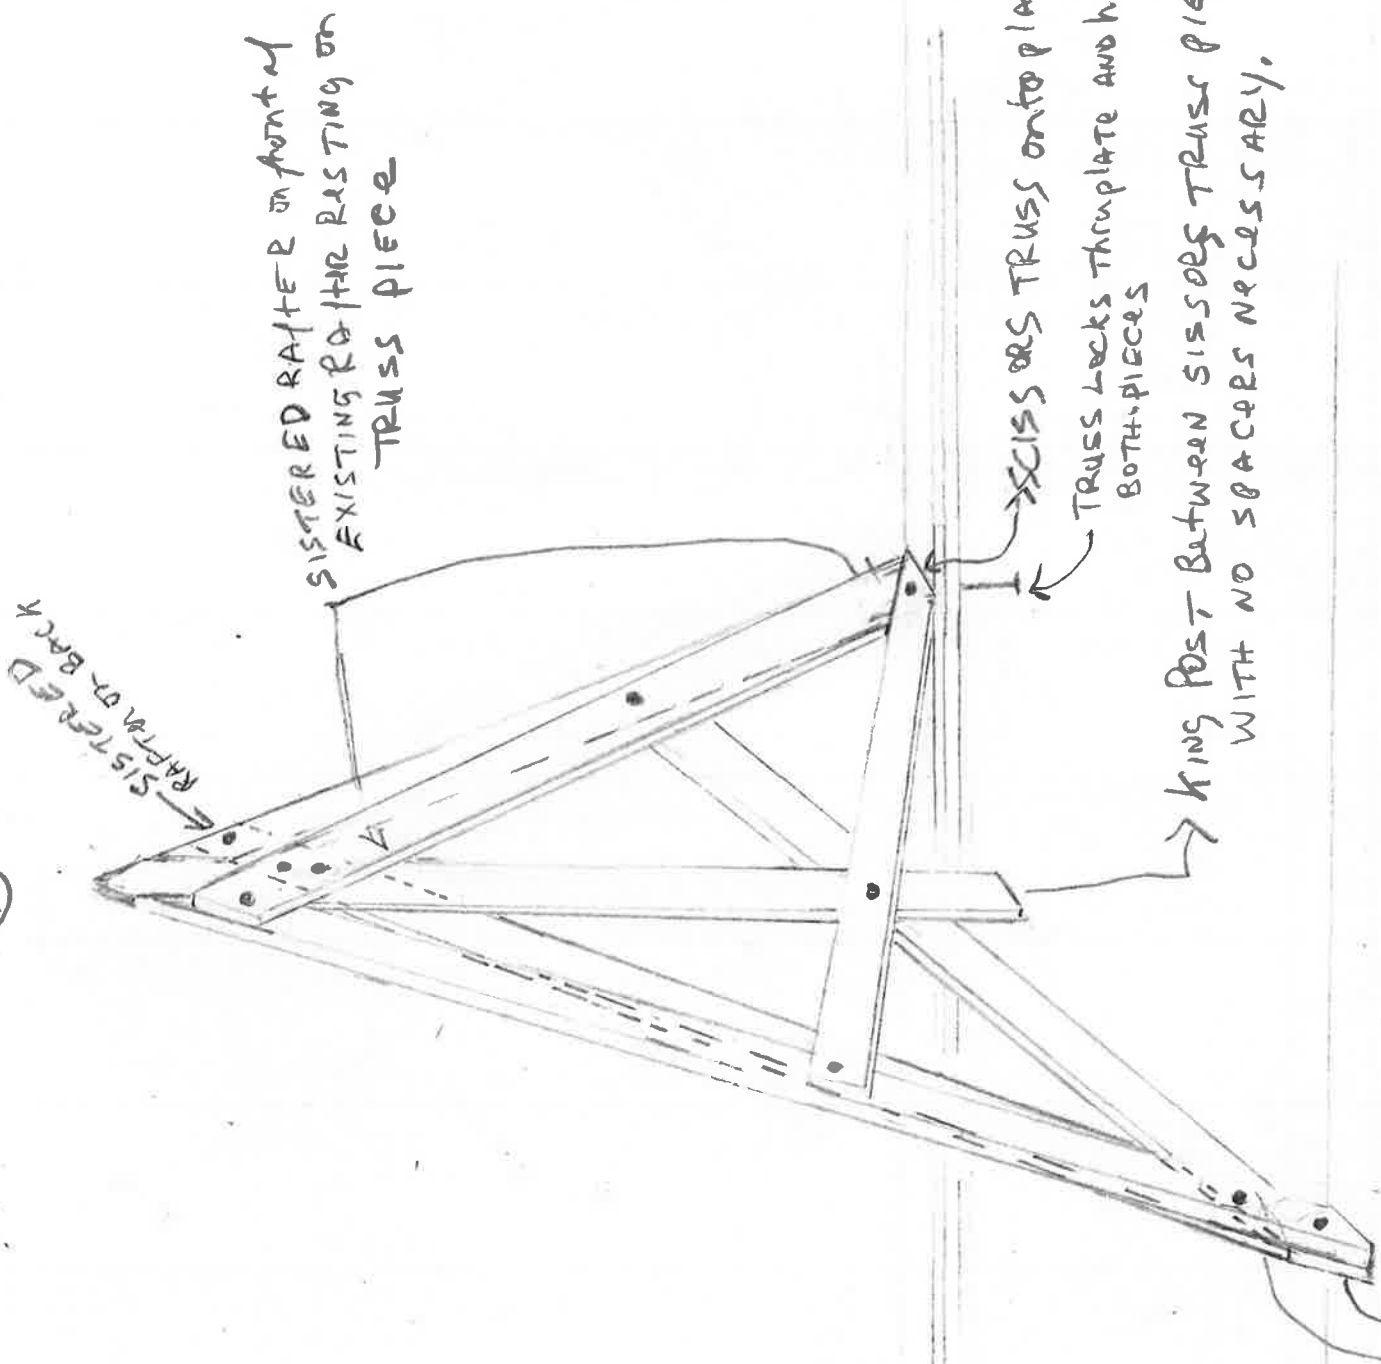 SISTERED
RAFTER ON BACK
SISTERED RAFTER on front of
EXISTING RAfTER RESTING on
TRUSS PIECE
SCISSORS TRUSS onto pla
TRUSS Locks Thruplate AND h
BOTH PIECES
KING POST Between SISSORS TRUSS PIE
WITH NO SPACERS NECESSARY.